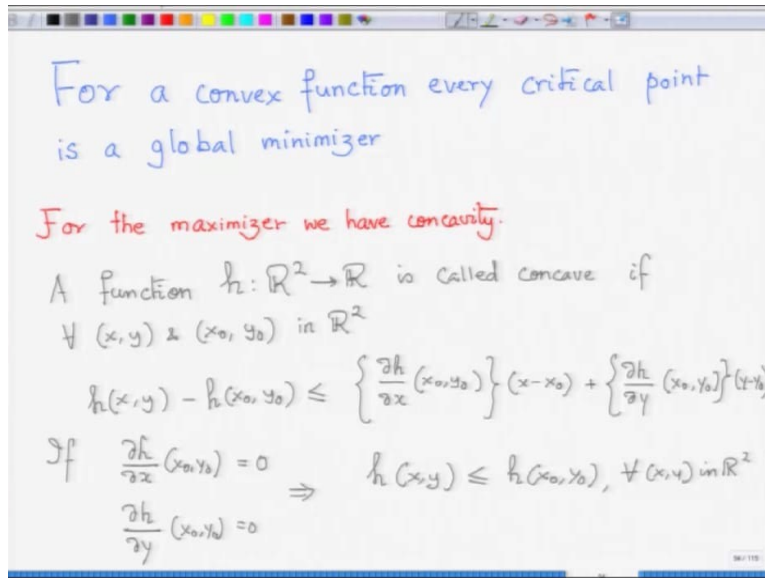 For a convex function every critical point
is a global minimizer
For the maximizer we have concavity.
A function h : ℝ² → ℝ is called concave if
∀ (x, y) & (x₀, y₀) in ℝ²
h(x, y) - h(x₀, y₀) ≤ {∂h/∂x (x₀, y₀)} (x-x₀) + {∂h/∂y (x₀, y₀)} (y-y₀)
If ∂h/∂x (x₀, y₀) = 0 ⇒ h(x, y) ≤ h(x₀, y₀), ∀ (x, y) in ℝ²
∂h/∂y (x₀, y₀) = 0